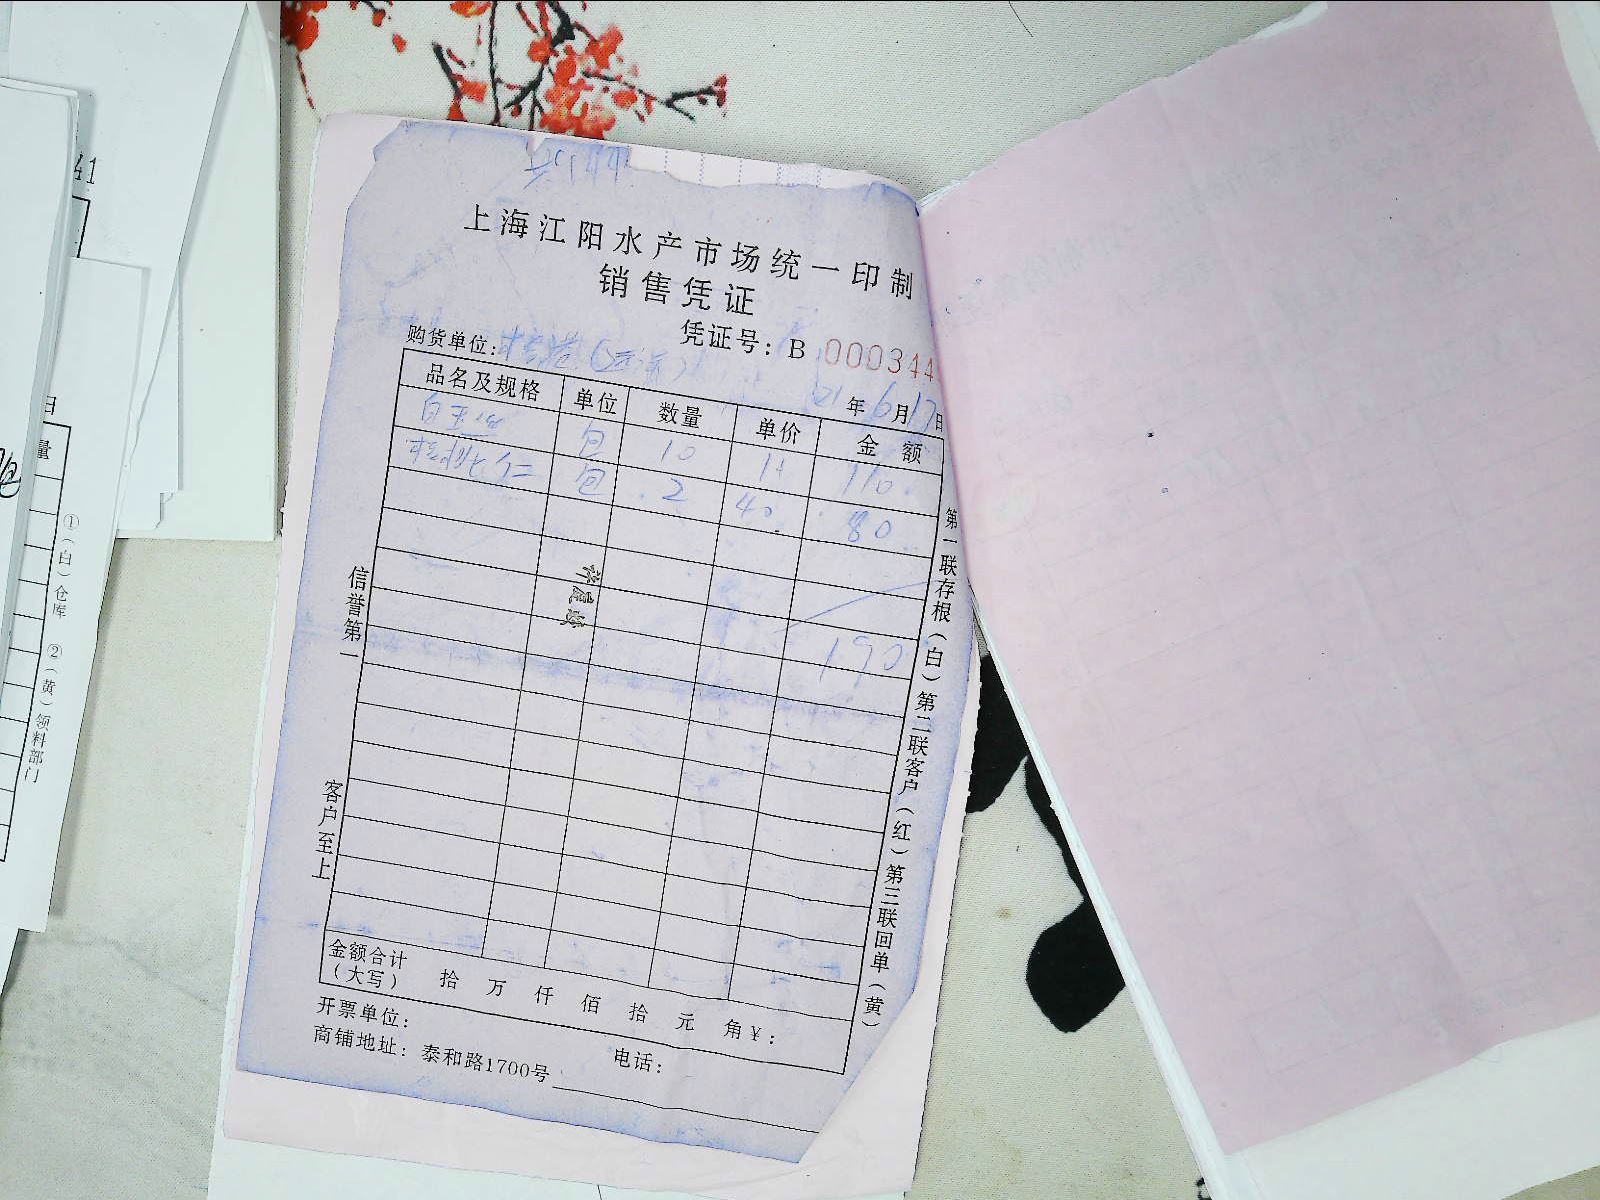 上海江阳水产市场统一印制
销售凭证
凭证号: B 000344
购货单位:
21年6月17日
品名及规格 单位 数量 单价 金额
包 10 11 110
包 2 40 80
190
信誉第一
客户至上
第一联存根(白) 第二联客户(红) 第三联回单(黄)
金额合计
(大写) 拾 万 仟 佰 拾 元 角 ¥:
开票单位:
电话:
商铺地址: 泰和路1700号
41
日
量
①(白)仓库 ②(黄)领料部门